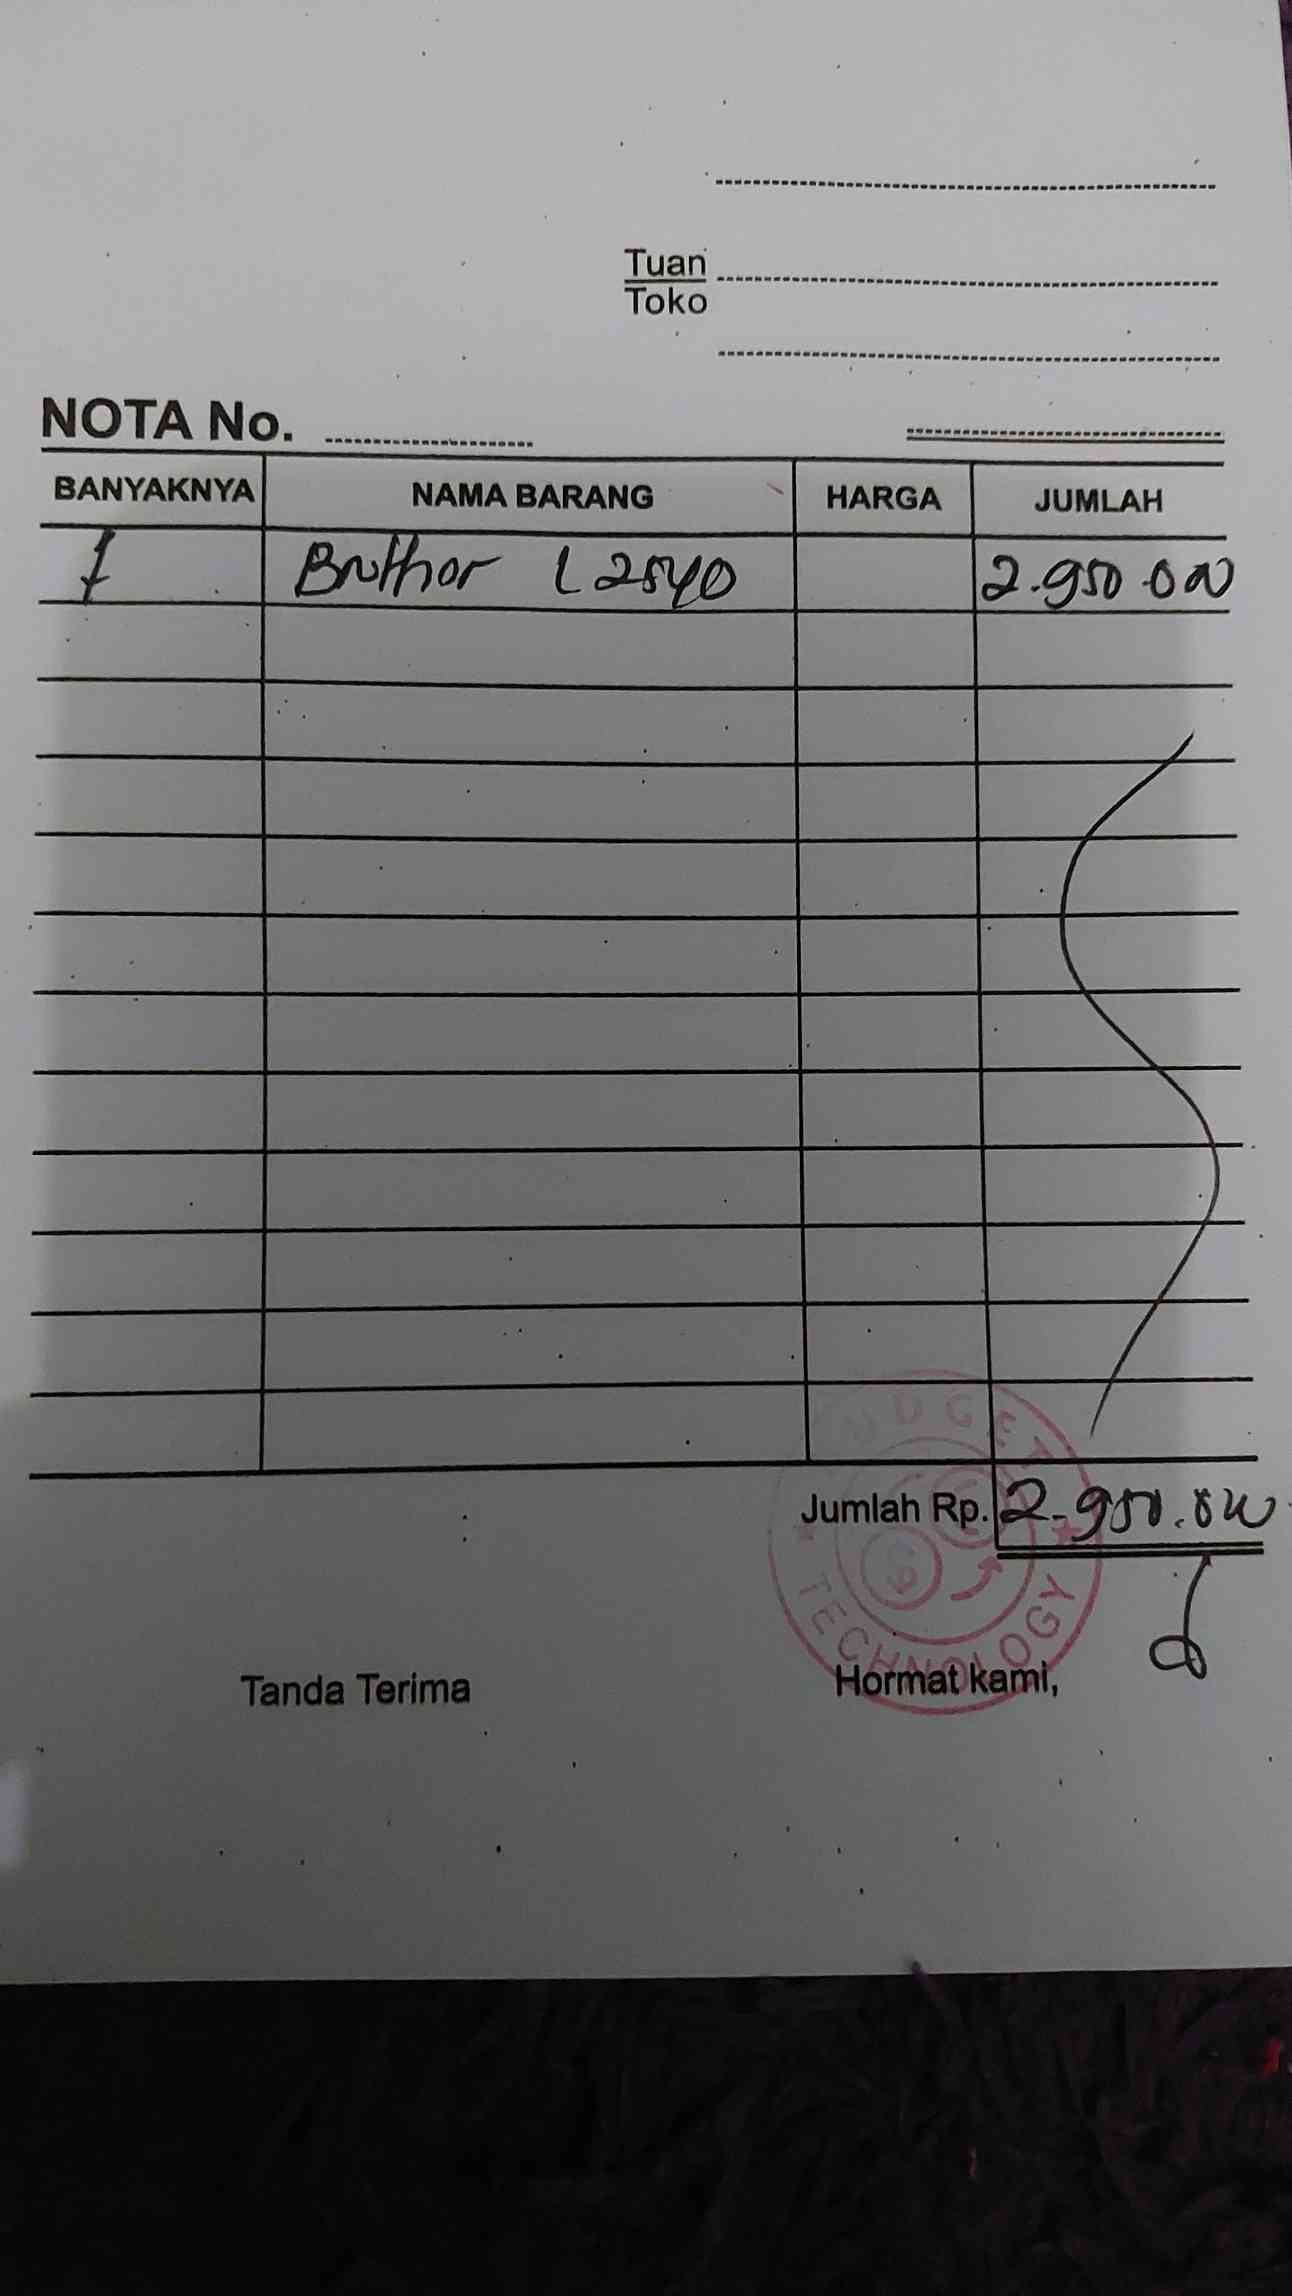 Tuan
Toko
NOTA No.
BANYAKNYA NAMA BARANG HARGA JUMLAH
1 Brother L2540 2.950.000
Jumlah Rp. 2.950.000
BUDGET TECHNOLOGY
Tanda Terima Hormat kami,